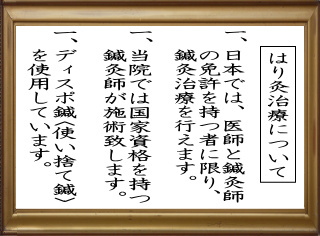 はり灸治療について
一、日本では、医師と鍼灸師
の免許を持つ者に限り、
鍼灸治療を行えます。
一、当院では国家資格を持つ
鍼灸師が施術致します。
一、ディスポ鍼〈使い捨て鍼〉
を使用しています。